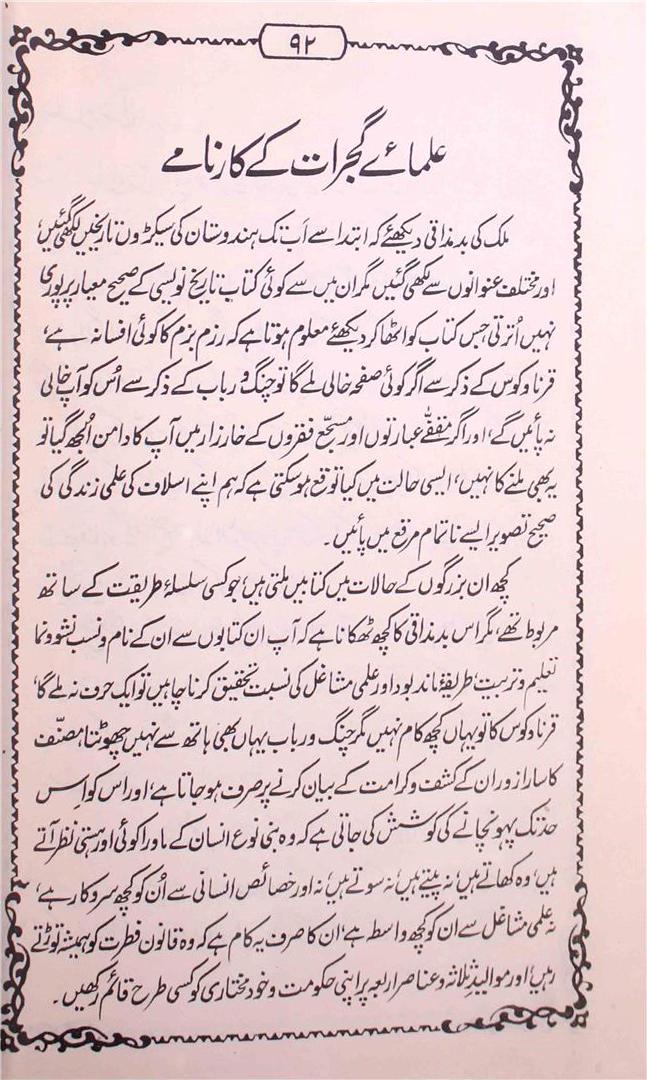 ۹۲
علمائے گجرات کے کارنامے
ملک کی بدمذاقی دیکھئے کہ ابتدا سے اَب تک ہندوستان کی سیکڑوں تاریخیں لکھی گئیں،
اور مختلف عنوانوں سے لکھی گئیں مگر ان میں سے کوئی کتاب تاریخ نویسی کے صحیح معیار پر پوری
نہیں اُترتی جس کتاب کو اٹھا کر دیکھئے معلوم ہوتا ہے کہ رزم بزم کا کوئی افسانہ ہے،
قرنا و کوس کے ذکر سے اگر کوئی صفحہ خالی ملے گا تو چنگ و رباب کے ذکر سے اُس کو آپ خالی
نہ پائیں گے، اور اگر مقفّٰے عبارتوں اور مسجّع فقروں کے خارزار میں آپ کا دامن اُلجھ گیا تو
یہ بھی ملنے کا نہیں، ایسی حالت میں کیا توقع ہو سکتی ہے کہ ہم اپنے اسلاف کی علمی زندگی کی
صحیح تصویر ایسے ناتمام مرقع میں پائیں۔
کچھ ان بزرگوں کے حالات میں کتابیں ملتی ہیں، جو کسی سلسلۂ طریقت کے ساتھ
مربوط تھے، مگر اس بدمذاقی کا کچھ ٹھکانا ہے کہ آپ ان کتابوں سے ان کے نام و نسب نشو و نما
تعلیم و تربیت، طریقۂ ماند بود اور علمی مشاغل کی نسبت تحقیق کرنا چاہیں تو ایک حرف نہ ملے گا،
قرنا و کوس کا تو یہاں کچھ کام نہیں مگر چنگ و رباب یہاں بھی ہاتھ سے نہیں چھوٹتا، مصنّف
کا سارا زور ان کے کشف و کرامت کے بیان کرنے پر صرف ہو جاتا ہے، اور اس کو اِس
حد تک پہونچانے کی کوشش کی جاتی ہے کہ وہ بنی نوع انسان کے ماورا کوئی اور ہستی نظر آتے
ہیں، وہ کھاتے ہیں، نہ پیتے ہیں، نہ سوتے ہیں، نہ اور خصائص انسانی سے اُن کو کچھ سروکار ہے،
نہ علمی مشاغل سے ان کو کچھ واسطہ ہے، ان کا صرف یہ کام ہے کہ وہ قانون فطرت کو ہمیشہ توڑتے
رہیں، اور موالیدِ ثلاثہ و عناصر اربعہ پر اپنی حکومت و خودمختاری کو کسی طرح قائم رکھیں۔